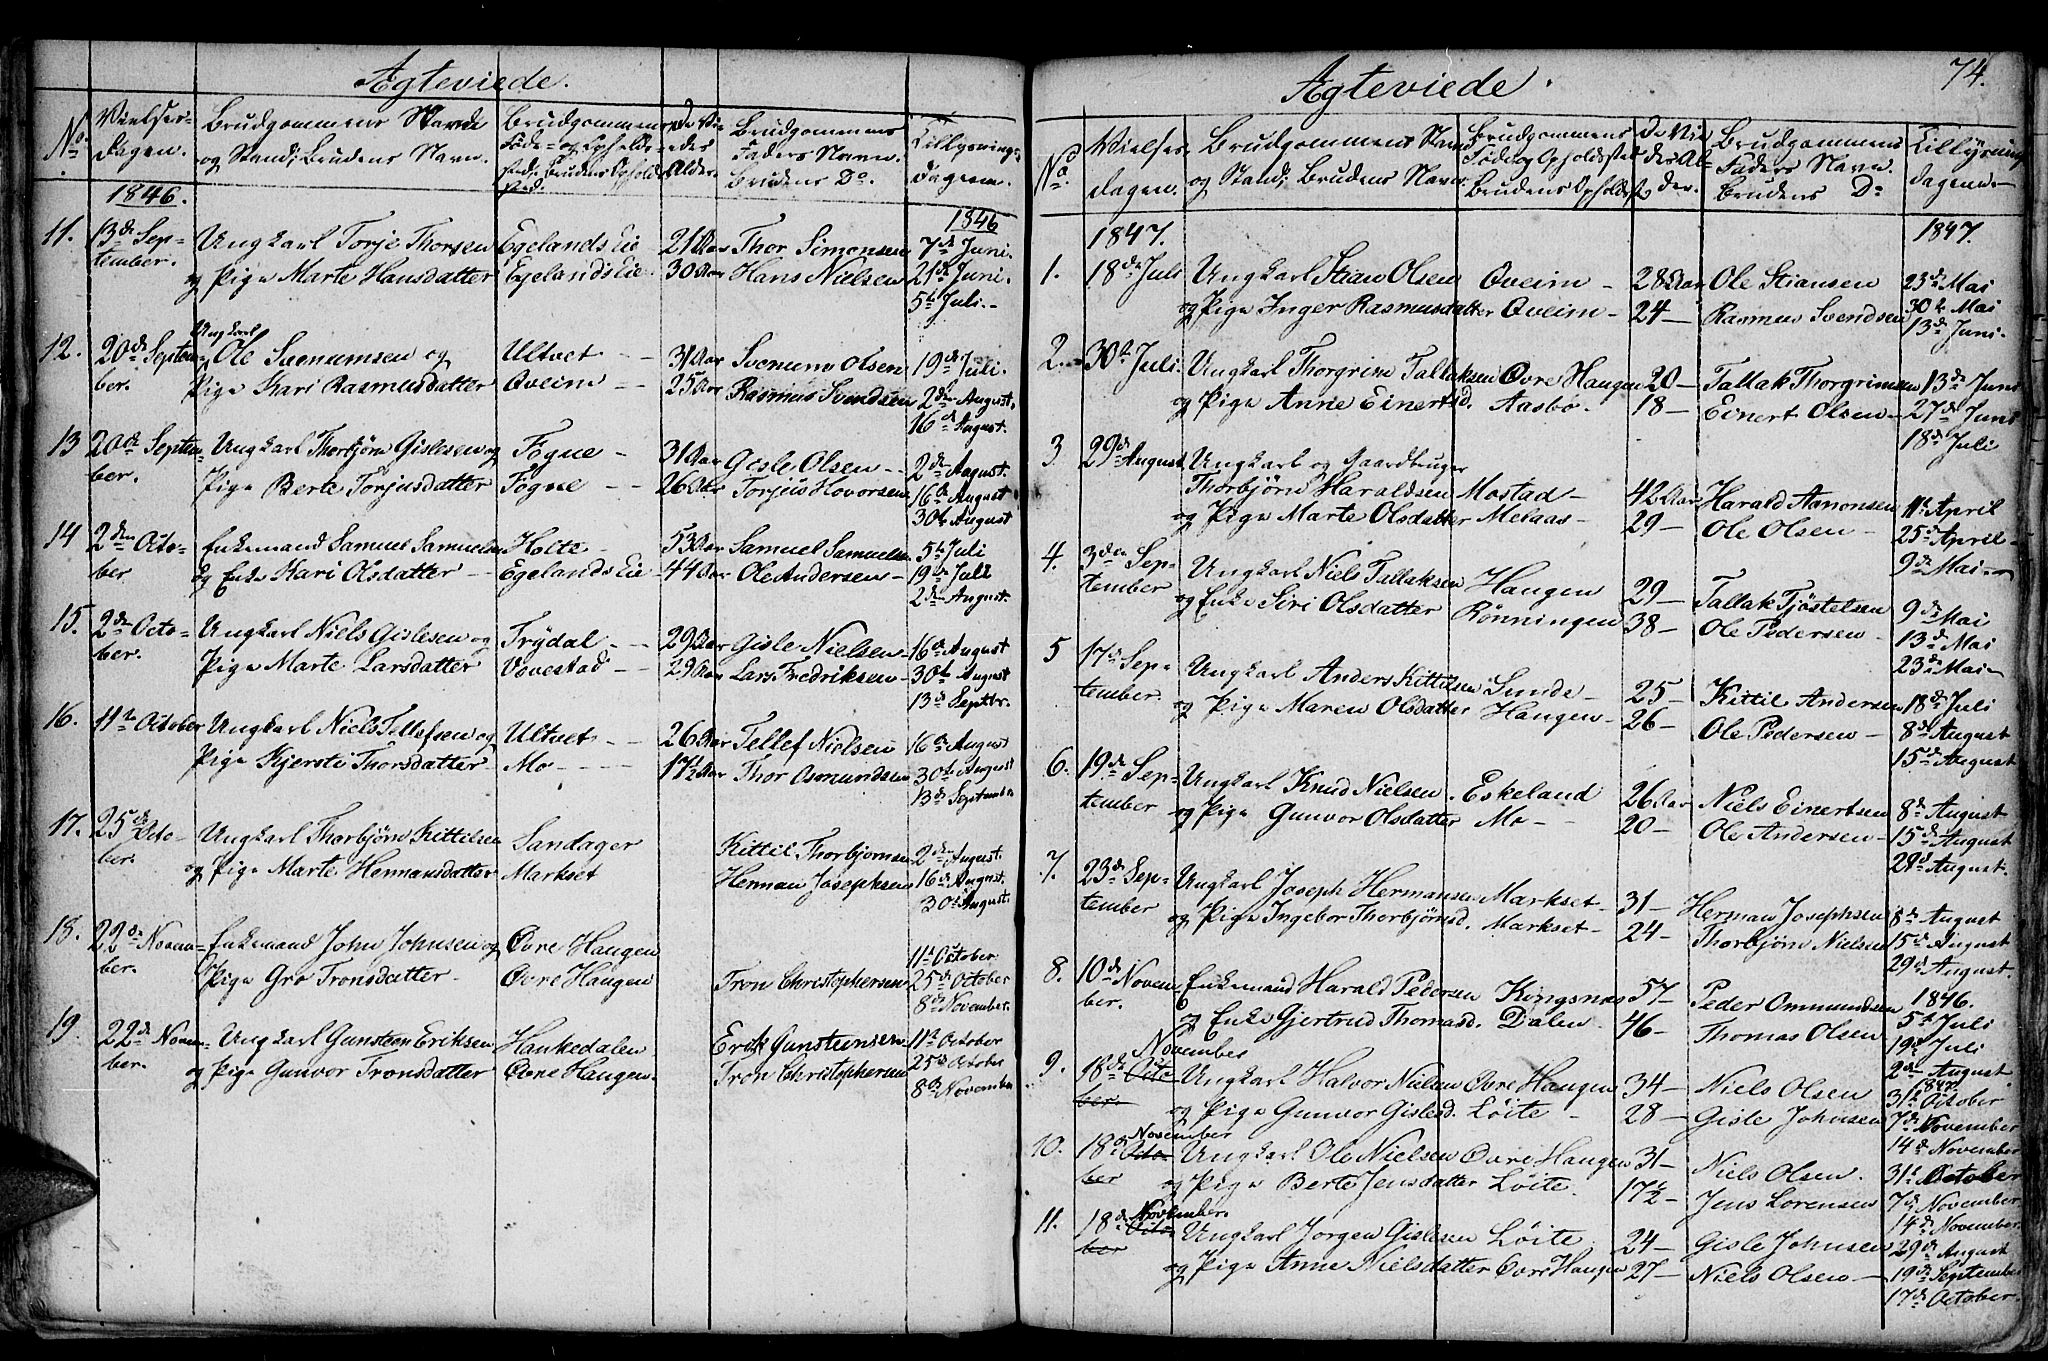 Agteviede.
No. Vielses-dagen. Brudgommens Navn og Stand; Brudens Navn. Brudgommens Føde- og Opholds-sted; Brudens Opholdsted. De Vi-edes Alder. Brudgommens Faders Navn. Brudens Do. Tillysnings-dagene.
1846. 1846
11. 13de Sep- Ungkarl Torje Thorsen Egelands Eie 21 Aar Thor Simonsen 7de Juni.
tember. og Pige Marte Hansdatter Egelands Eie 30 Aar Hans Nielsen 21de Juni.
5te Juli.
Ungkarl
12. 20de Septem- Ole Svenumsen og Ultvet 31 Aar Svenum Olsen 19de Juli.
ber. Pige Kari Rasmusdatter Oveim 25 Aar Rasmus Svendsen 2den August.
16de August.
13 20de Septem- Ungkarl Thorbjörn Gislesen og Fogne 31 Aar Gisle Olsen 2den August.
ber. Pige Berte Torjusdatter Fogne 26 Aar Torjus Hovorsen 16de August
30te August
14 2den Octo- Enkemand Samuel Samuelsen Holte 53 Aar Samuel Samuelsen 5te Juli
ber og Enke Kari Olsdatter Egelands Eie 44 Aar Ole Andersen 19de Juli
2den August.
15. 2den Octo- Ungkarl Niels Gislesen og Trydal 29 Aar Gisle Nielsen 16de August
ber. Pige Marte Larsdatter Vovestad 29 Aar Lars Fredriksen 30te August
13de Septbr.
16. 11te October Ungkarl Niels Tellefsen og Ultvet 26 Aar Tellef Nielsen 16de August
Pige Kjersti Thorsdatter Mo 17½ Aar Thor Osmundsen 30te August
13de September
17. 25de Octo- Ungkarl Thorbjörn Kittilsen Sandager Kittil Thorbjornsen 2den August.
ber. og Pige Marte Hermansdatter Markset Herman Josephsen 16de August.
30te August.
18. 22de Novem- Enkemand John Johnsen og Øvre Haugen 11te October
ber. Pige Gro Tronsdatter Øvre Haugen Tron Christophersen 25de October
8de November.
19 22de Novem- Ungkarl Gunsten Eriksen Haukedalen Erik Gunsteinsen 11te October
ber. og Pige Gunvor Tronsdatter Øvre Haugen. Tron Christophersen 25de October
8de November
74.
Agteviede.
No. Vielses-dagen. Brudgommens Navn og Stand; Brudens Navn. Brudgommens Føde og Opholdsted Brudens Opholdsted De Vie-des Al-der. Brudgommens Faders Navn. Brudens Do Tillysnings dagene.
1847. 1847.
1. 18de Juli Ungkarl Stian Olsen Oveim 28 Aar Ole Stiansen 23de Mai
og Pige Inger Rasmusdatter Oveim 24 Rasmus Svendsen 30te Mai
13de Juni.
2. 30te Juli. Ungkarl Thorgrim Tallaksen Øvre Haugen 20 Tallak Thorgrimsen 13de Juni
og Pige Anne Einertsd. Aasbo. 18 Einert Olsen 27de Juni
18de Juli
3. 29de August Ungkarl og Gaardbruger
Thorbjörn Haraldsen Mostad 42 Aar Harald Aanonsen 11te April
og Pige Marte Olsdatter Melaas 29 Ole Olsen 25de April
9de Mai
4. 3den Sep- Ungkarl Niels Tallaksen Haugen 29 Tallak Tjöstelsen 9de Mai
tember og Enke Siri Olsdatter Rönningen 38 Ole Pedersen 13de Mai
23de Mai
5 17de Sep- Ungkarl Anders Kittilsen Sunde 25 Kittil Andersen 18de Juli
tember. og Pige Maren Olsdatter Haugen 26 Ole Pedersen 8de August
15de August
6. 19de Sep- Ungkarl Knud Nielsen. Eskeland 26 Aar Niels Einertsen 8de August
tember og Pige Gunvor Olsdatter Mo 20 Ole Andersen 15de August
29de August.
7. 23de Sep- Ungkarl Joseph Hermansen Markset 31 Herman Josephsen 8de August
tember og Pige Ingebor Thorbjörnsd. Markset 24 Thorbjörn Nielsen 15de August
29de August.
8. 10de Novem- Enkemand Harald Pedersen Kongsnæs 57 Peder Ommundsen 1846.
ber. og Enke Gjertrud Thomasd. Dalen 46 Thomas Olsen 5te Juli
19de Juli
November 2den August
9. 18de Octo- Ungkarl Halvor Nielsen Øvre Haugen 34 Niels Olsen 1847. 31te October
ber. og Pige Gunvor Gislesd. Löite 28 Gisle Johnsen 7de November
November 14de November
10. 18de Octo- Ungkarl Ole Nielsen Øvre Haugen 31 Niels Olsen. 31te October
ber og Pige Berte Jensdatter Löite. 17½ Jens Lorensen 7de November
November. 14de November
11. 18de Octo- Ungkarl Jorgen Gislesen Löite 24 Gisle Johnsen 29de August
ber og Pige Anne Nielsdatter Øvre Haugen 27 Niels Olsen 19de September
17de October.